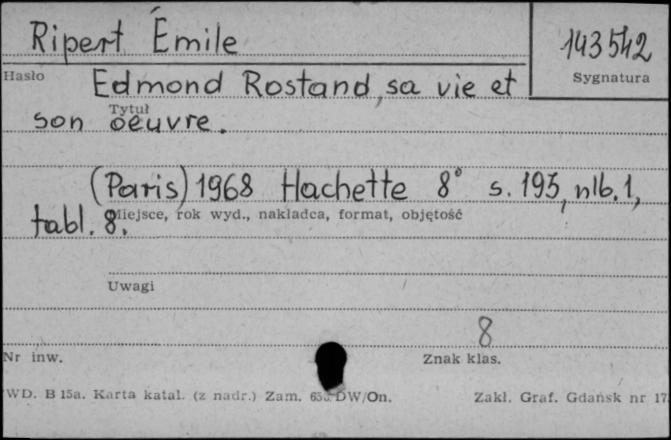 Ripert Émile
143542
Hasło
Sygnatura
Edmond Rostand, sa vie et
Tytuł
son oeuvre.
(Paris) 1968 Hachette 8° s. 195, nlb. 1,
Miejsce, rok wyd., nakładca, format, objętość
tabl. 8.
Uwagi
8
Nr inw.
Znak klas.
WD. B 15a. Karta katal. (z nadr.) Zam. DW/On.
Zakł. Graf. Gdańsk nr 17